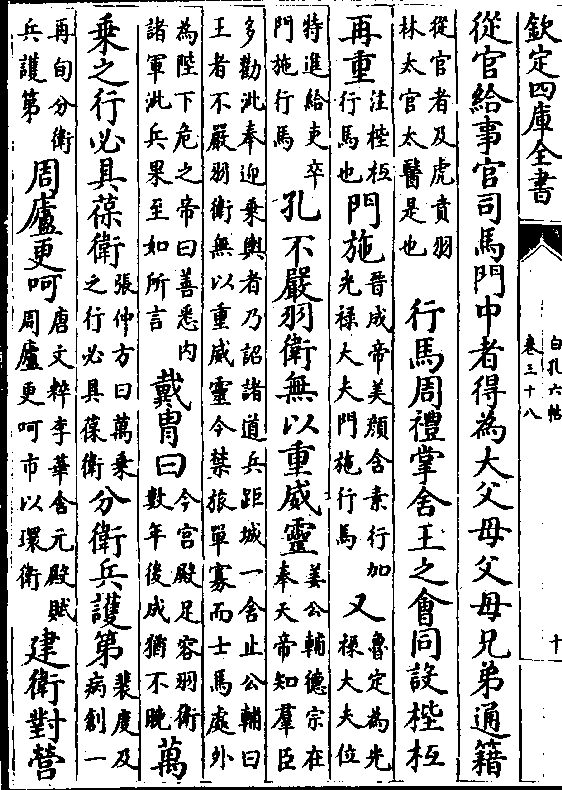 欽定四庫全書
白孔六帖
卷三十八
十
從官給事官司馬門中者得為大父母父母兄弟通籍
從官者及虎賁羽
林太官太醫是也
行馬周禮掌舍王之會同設梐枑
再重
注梐枑
行馬也
門施
晉成帝美顔含素行加
光禄大夫門施行馬
又
魯定為光
禄大夫位
特進給吏卒
門施行馬
孔不嚴羽衛無以重威靈
姜公輔德宗在
奉天帝知羣臣
多勸沘奉迎乗輿者乃詔諸道兵距城一舍止公輔曰
王者不嚴羽衛無以重威靈今禁旅單寡而士馬處外
為陛下危之帝曰善悉内
諸軍沘兵果至如所言
戴胄曰
今宫殿足容羽衛
數年後成猶不晚
萬
乗之行必具葆衛
張仲方曰萬乗
之行必具葆衛
分衛兵護第
裴度及
病創一
再旬分衛
兵護第
周廬更呵
唐文粹李華含元殿賦
周廬更呵市以環衛
建衛對營